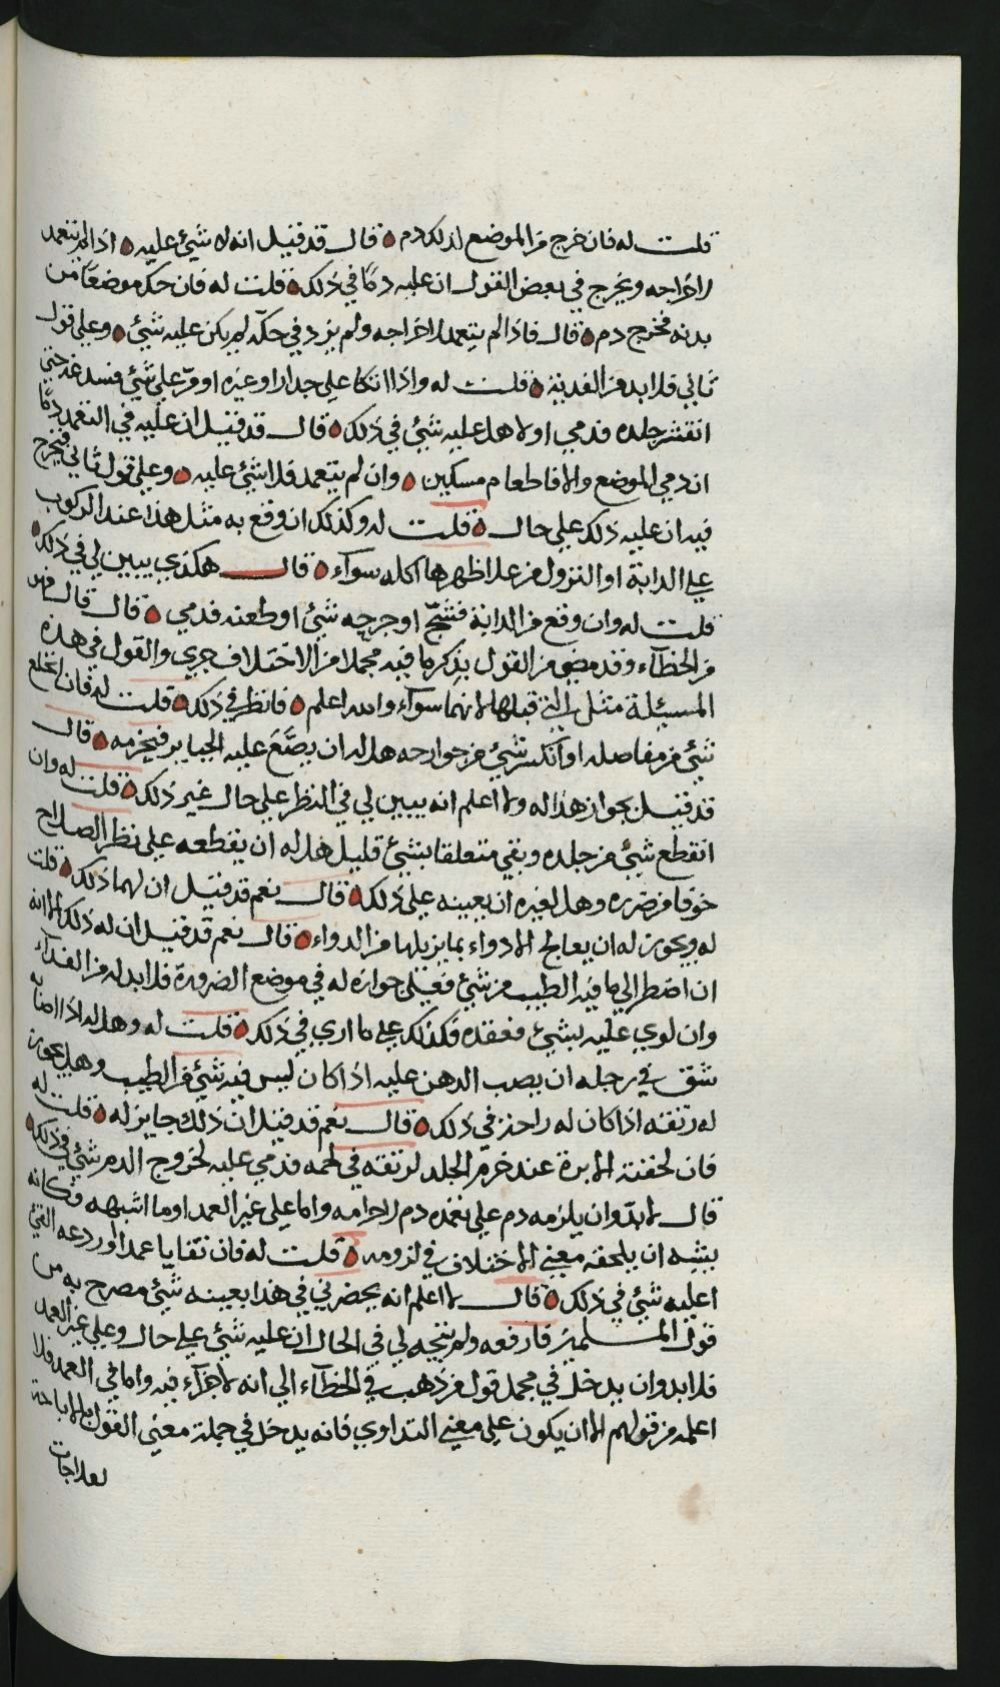 قلت له فان خرج من الموضع لذلك دم قال قد قيل انه لا شيئ عليه اذا لم يتعمد
لاخراجه ويخرج في بعض القول ان عليه دمًا في ذلك قلت له فان حك موضعًا من
بدنه فخرج دم قال فاذا لم يتعمد لاخراجه ولم يزد في حكه لم يكن عليه شيئ وعلى قول
ثاني فلا بد من الفدية قلت له واذا اتكا على جدار او غيره او مرّ على شيئ فسدعه حتى
انقشر جلده فدمي او لا هل عليه شيئ في ذلك قال قد قيل ان عليه في التعمد دمًا
ان دمي الموضع والا فاطعام مسكين وان لم يتعمد فلا شيئ عليه وعلى قول ثاني فيخرج
فيه ان عليه ذلك على حال قلت له وكذلك ان وقع به مثل هذا عند الركوب
على الدابة او النزول من على ظهرها اكله سوآء قال هكذي يبين لي في ذلك
قلت له وان وقع من الدابة فشجّ او جرحه شيئ او طعنه فدمي قال قال فهو
من الخطآء وقد مضى من القول بذكر ما فيه مجملا من الاختلاف جرى والقول في هذه
المسيئلة مثل التي قبلها لانهما سوآء والله اعلم فانظر في ذلك قلت له فان انخلع
شيئ من مفاصله او انكسر شيئ من جوارحه هل له ان يضَعَ عليه الجباير فيحزمه قال
قد قيل بجواز هذا له ولا اعلم انه يبين لي في النظر على حال غير ذلك قلت له وان
انقطع شيئ من جلده وبقي متعلقا بشيئ قليل هل له ان يقطعه على نظر الصلاح
خوفا من ضرره وهل لغيره ان يعينه على ذلك قال نعم قد قيل ان لهما ذلك قلت
له ويجوز له ان يعالج الادواء بما يزيلها من الدواء قال نعم قد قيل ان له ذلك الا انه
ان اضطر الى ما فيه الطيب من شيئ فعلى جوازه له في موضع الضرورة فلا بد له من الفدآء
وان لوى عليه بشيئ فعقده فكذلك على ما ارى في ذلك قلت له وهل له اذا اصابه
شقق في رجله ان يصب الدهن عليه اذا كان ليس فيه شيئ من الطيب وهل يجوز
له رتقه اذا كان له راحة في ذلك قال نعم قد قيل ان ذلك جايز له قلت له
فان لحقته الابرة عند خرم الجلد لرتقه في لحمه فدمي عليه لخروج الدم شيئ في ذلك
قال لا بد وان يلزمه دم على تعمده دم لاحرامه واما على غير العمد او ما اشبهه فكانه
يشبه ان يلحقه معنى الاختلاف في لزومه قلت له فان تقايا عمدا او ردعه القيئ
اعليه شيئ في ذلك قال لا اعلم انه يحضرني في هذا بعينه شيئ مصرح به من
قول المسلمين فارفعه ولم يتجه لي في الحال ان عليه شيئ على حال وعلى غير العمد
فلا بد وان يدخل في مجمل قول من ذهب في الخطآء الى انه لا جزآء فيه واما في العمد فلا
اعلمه من قولهم الا ان يكون على معنى التداوي فانه يدخل في جملة معنى القول بالاباحة